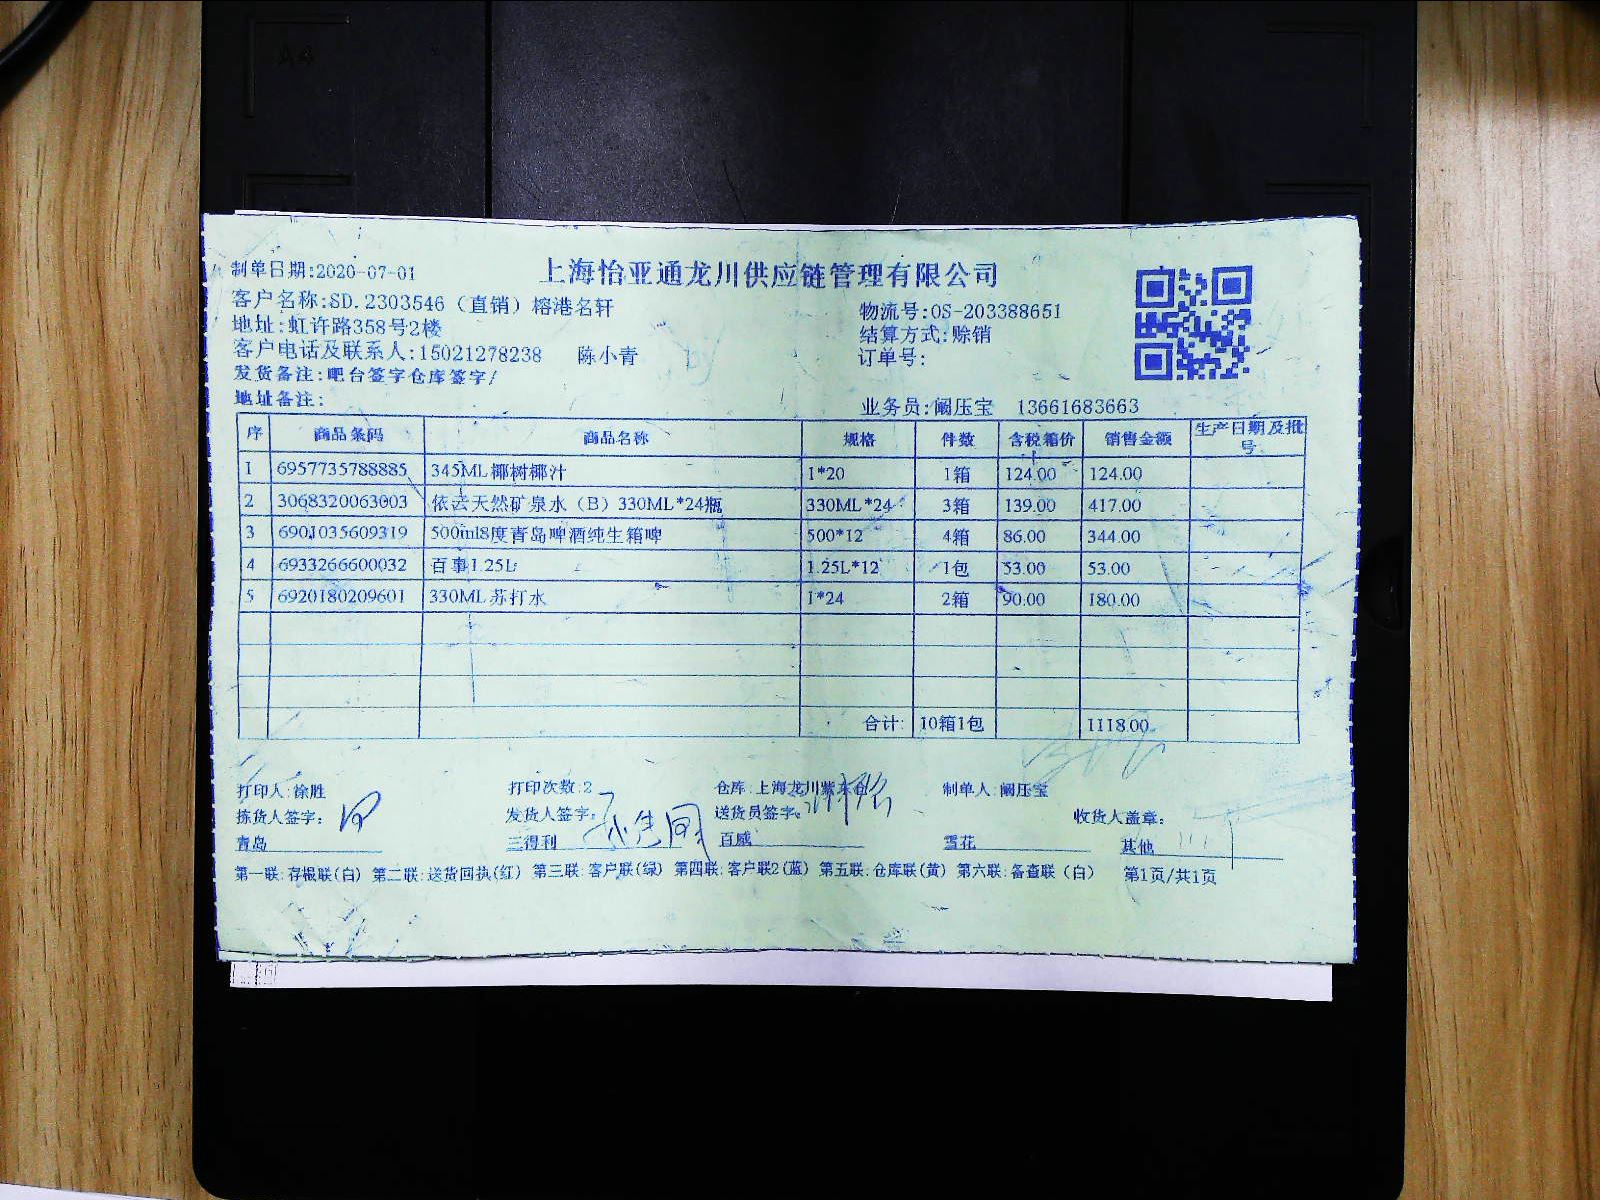 A4
上海怡亚通龙川供应链管理有限公司
制单日期:2020-07-01
客户名称:SD.2303546（直销）榕港名轩
物流号:OS-203388651
地址:虹许路358号2楼
结算方式:赊销
客户电话及联系人:15021278238 陈小青
订单号:
发货备注:吧台签字仓库签字/
地址备注:
业务员:阚压宝 13661683663
序 商品条码 商品名称 规格 件数 含税箱价 销售金额 生产日期及批号
1 6957735788885 345ML椰树椰汁 1*20 1箱 124.00 124.00
2 3068320063003 依云天然矿泉水（B）330ML*24瓶 330ML*24 3箱 139.00 417.00
3 6901035609319 500ml8度青岛啤酒纯生箱啤 500*12 4箱 86.00 344.00
4 6933266600032 百事1.25L 1.25L*12 1包 53.00 53.00
5 6920180209601 330ML苏打水 1*24 2箱 90.00 180.00
合计: 10箱1包 1118.00
打印人:徐胜 打印次数:2 仓库:上海龙川紫东仓 制单人:阚压宝
拣货人签字: 发货人签字: 送货员签字: 收货人盖章:
青岛 三得利 百威 雪花 其他
第一联:存根联(白) 第二联:送货回执(红) 第三联:客户联(绿) 第四联:客户联2(蓝) 第五联:仓库联(黄) 第六联:备查联（白） 第1页/共1页